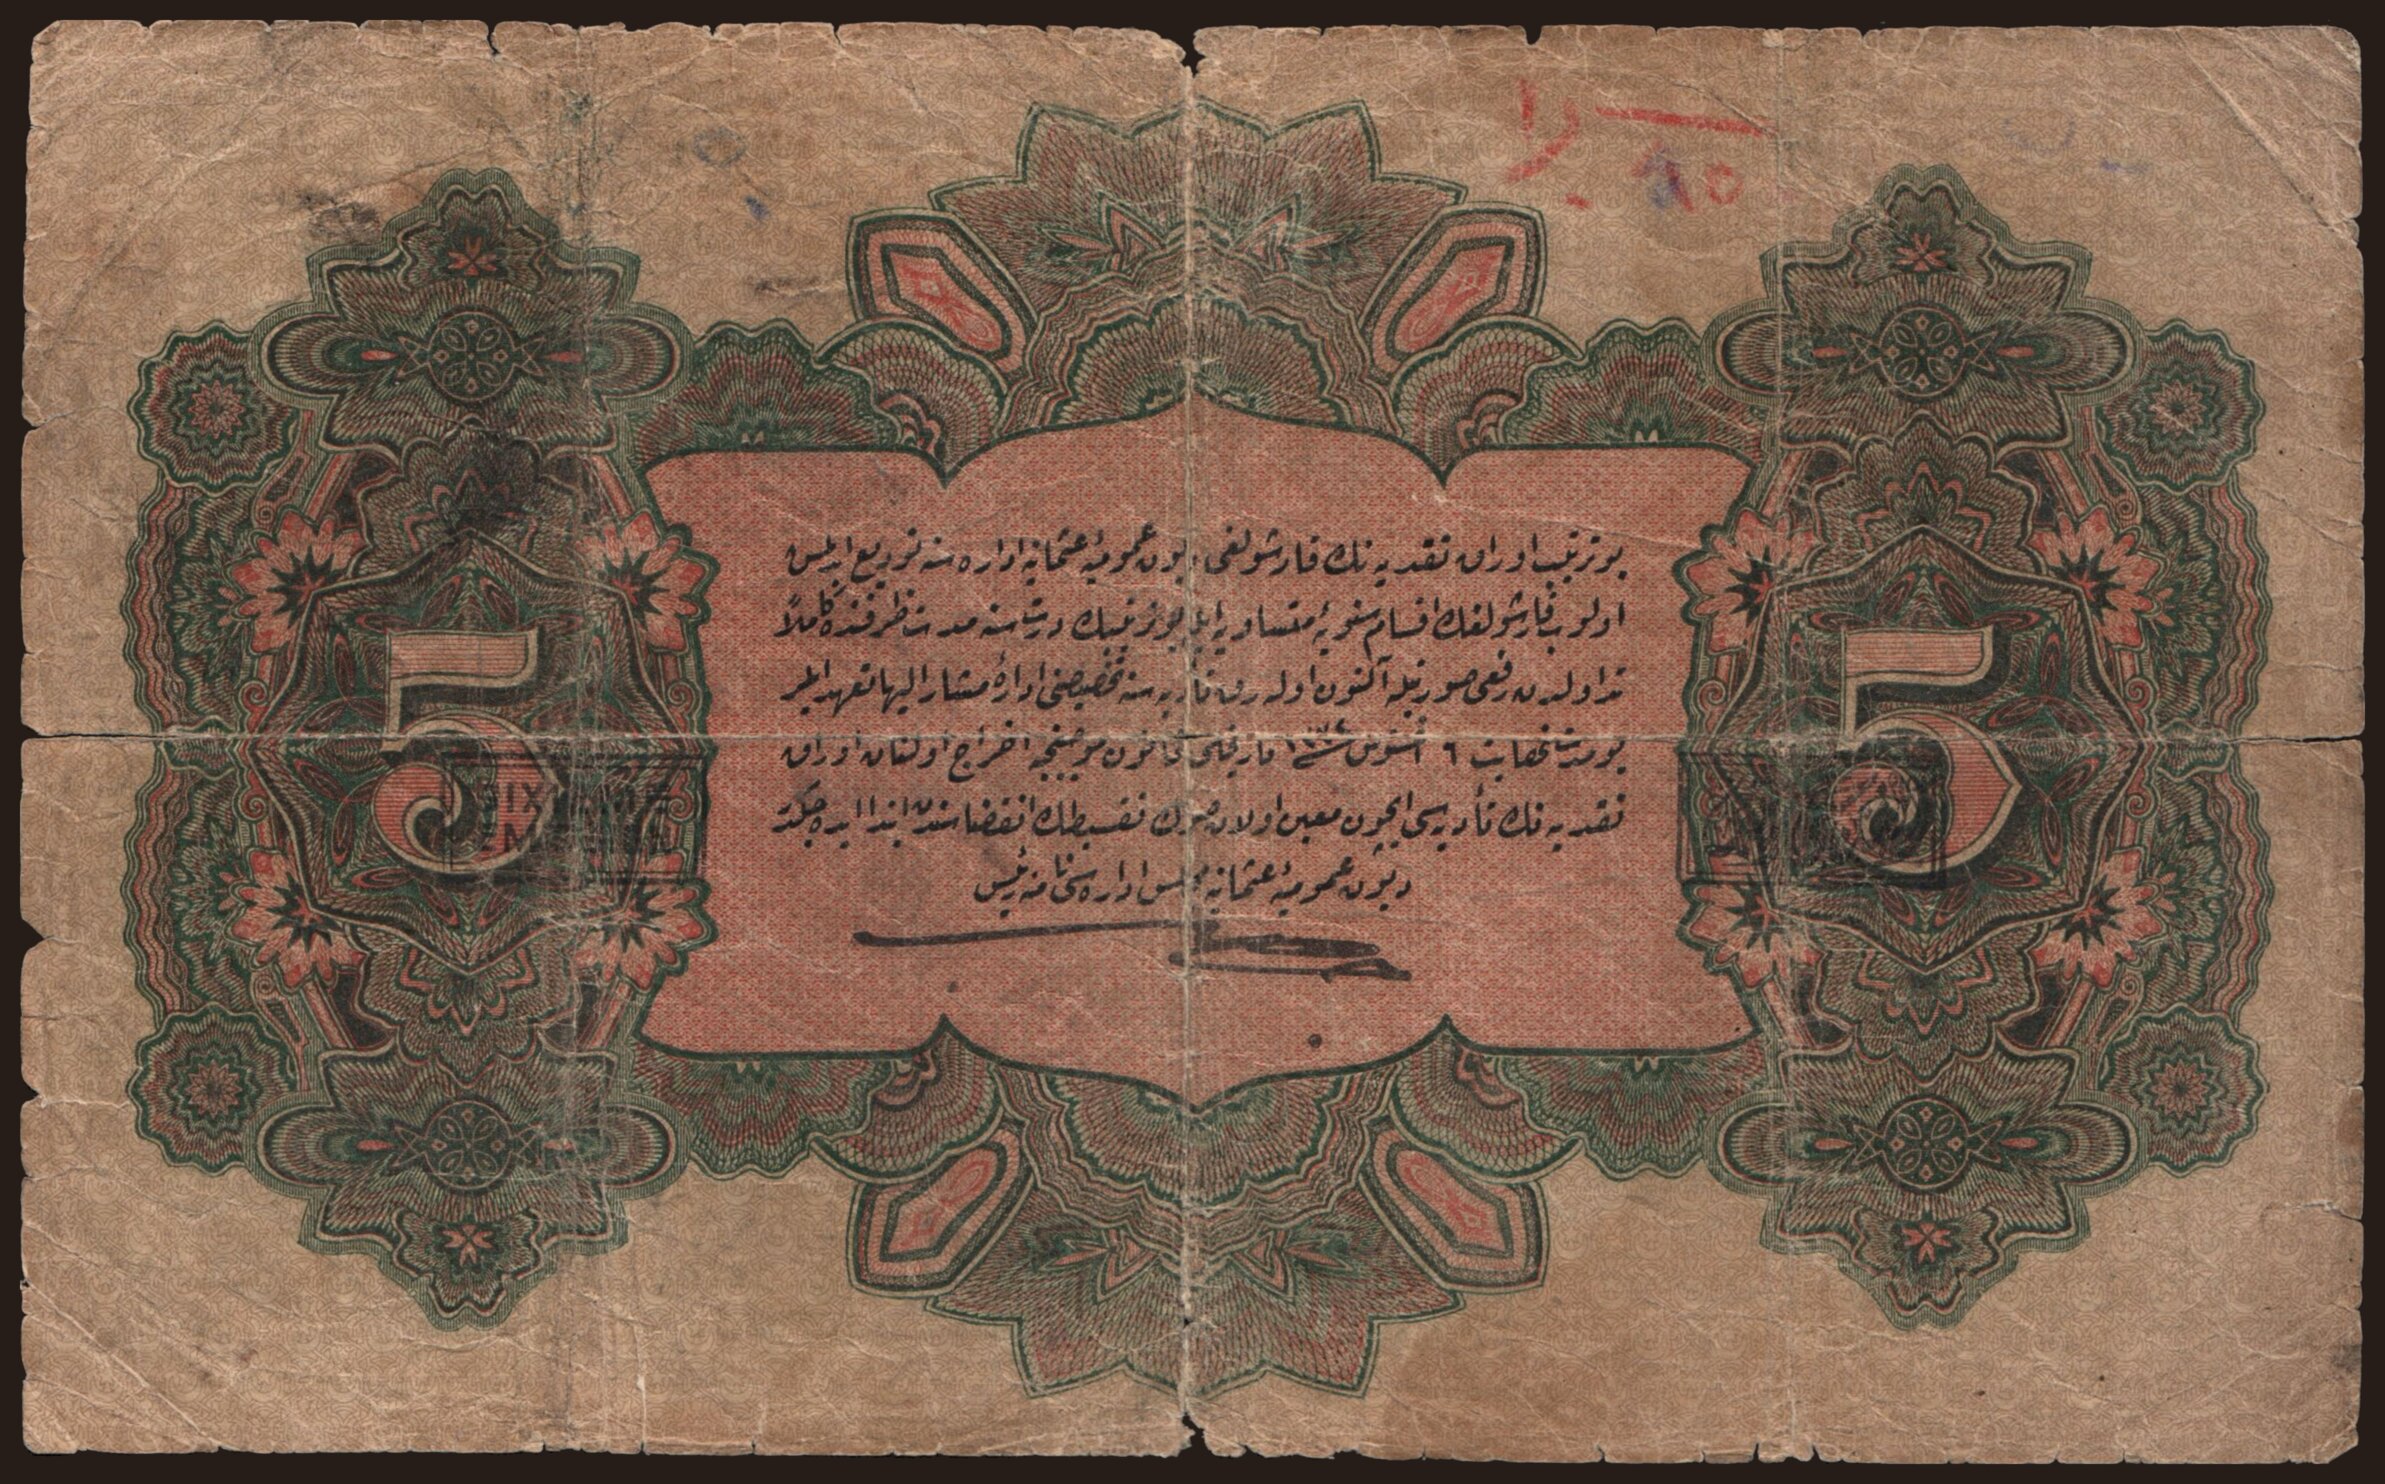 بو ترتیب اوراق نقدیه نك قارشولغی دیون عمومیهٔ عثمانیه اداره سنه تودیع ایدلمش
اولوب قارشولغك اقسام سنویهٔ متساویه ایله بو ترتیبك درت سنه مدت ظرفنده کاملاً
تداولدن رفعی صورتیله آلتون اوله رق تأدیه سنه تخصیصنی ادارهٔ مشار الیها تعهد ایلر
بو مدت نهایت ٦ اغستوس سنه ١٣٣٤ تاریخلی قانون موجبنجه اخراج اولنان اوراق
نقدیه نك تأدیه سی ایچون معین اولان صوك تقسیطك انقضاسندن ابتدا ایده جكدر
دیون عمومیهٔ عثمانیه مجلس اداره سی نامنه رئیس
5
5
SIXIEME
EMISSION